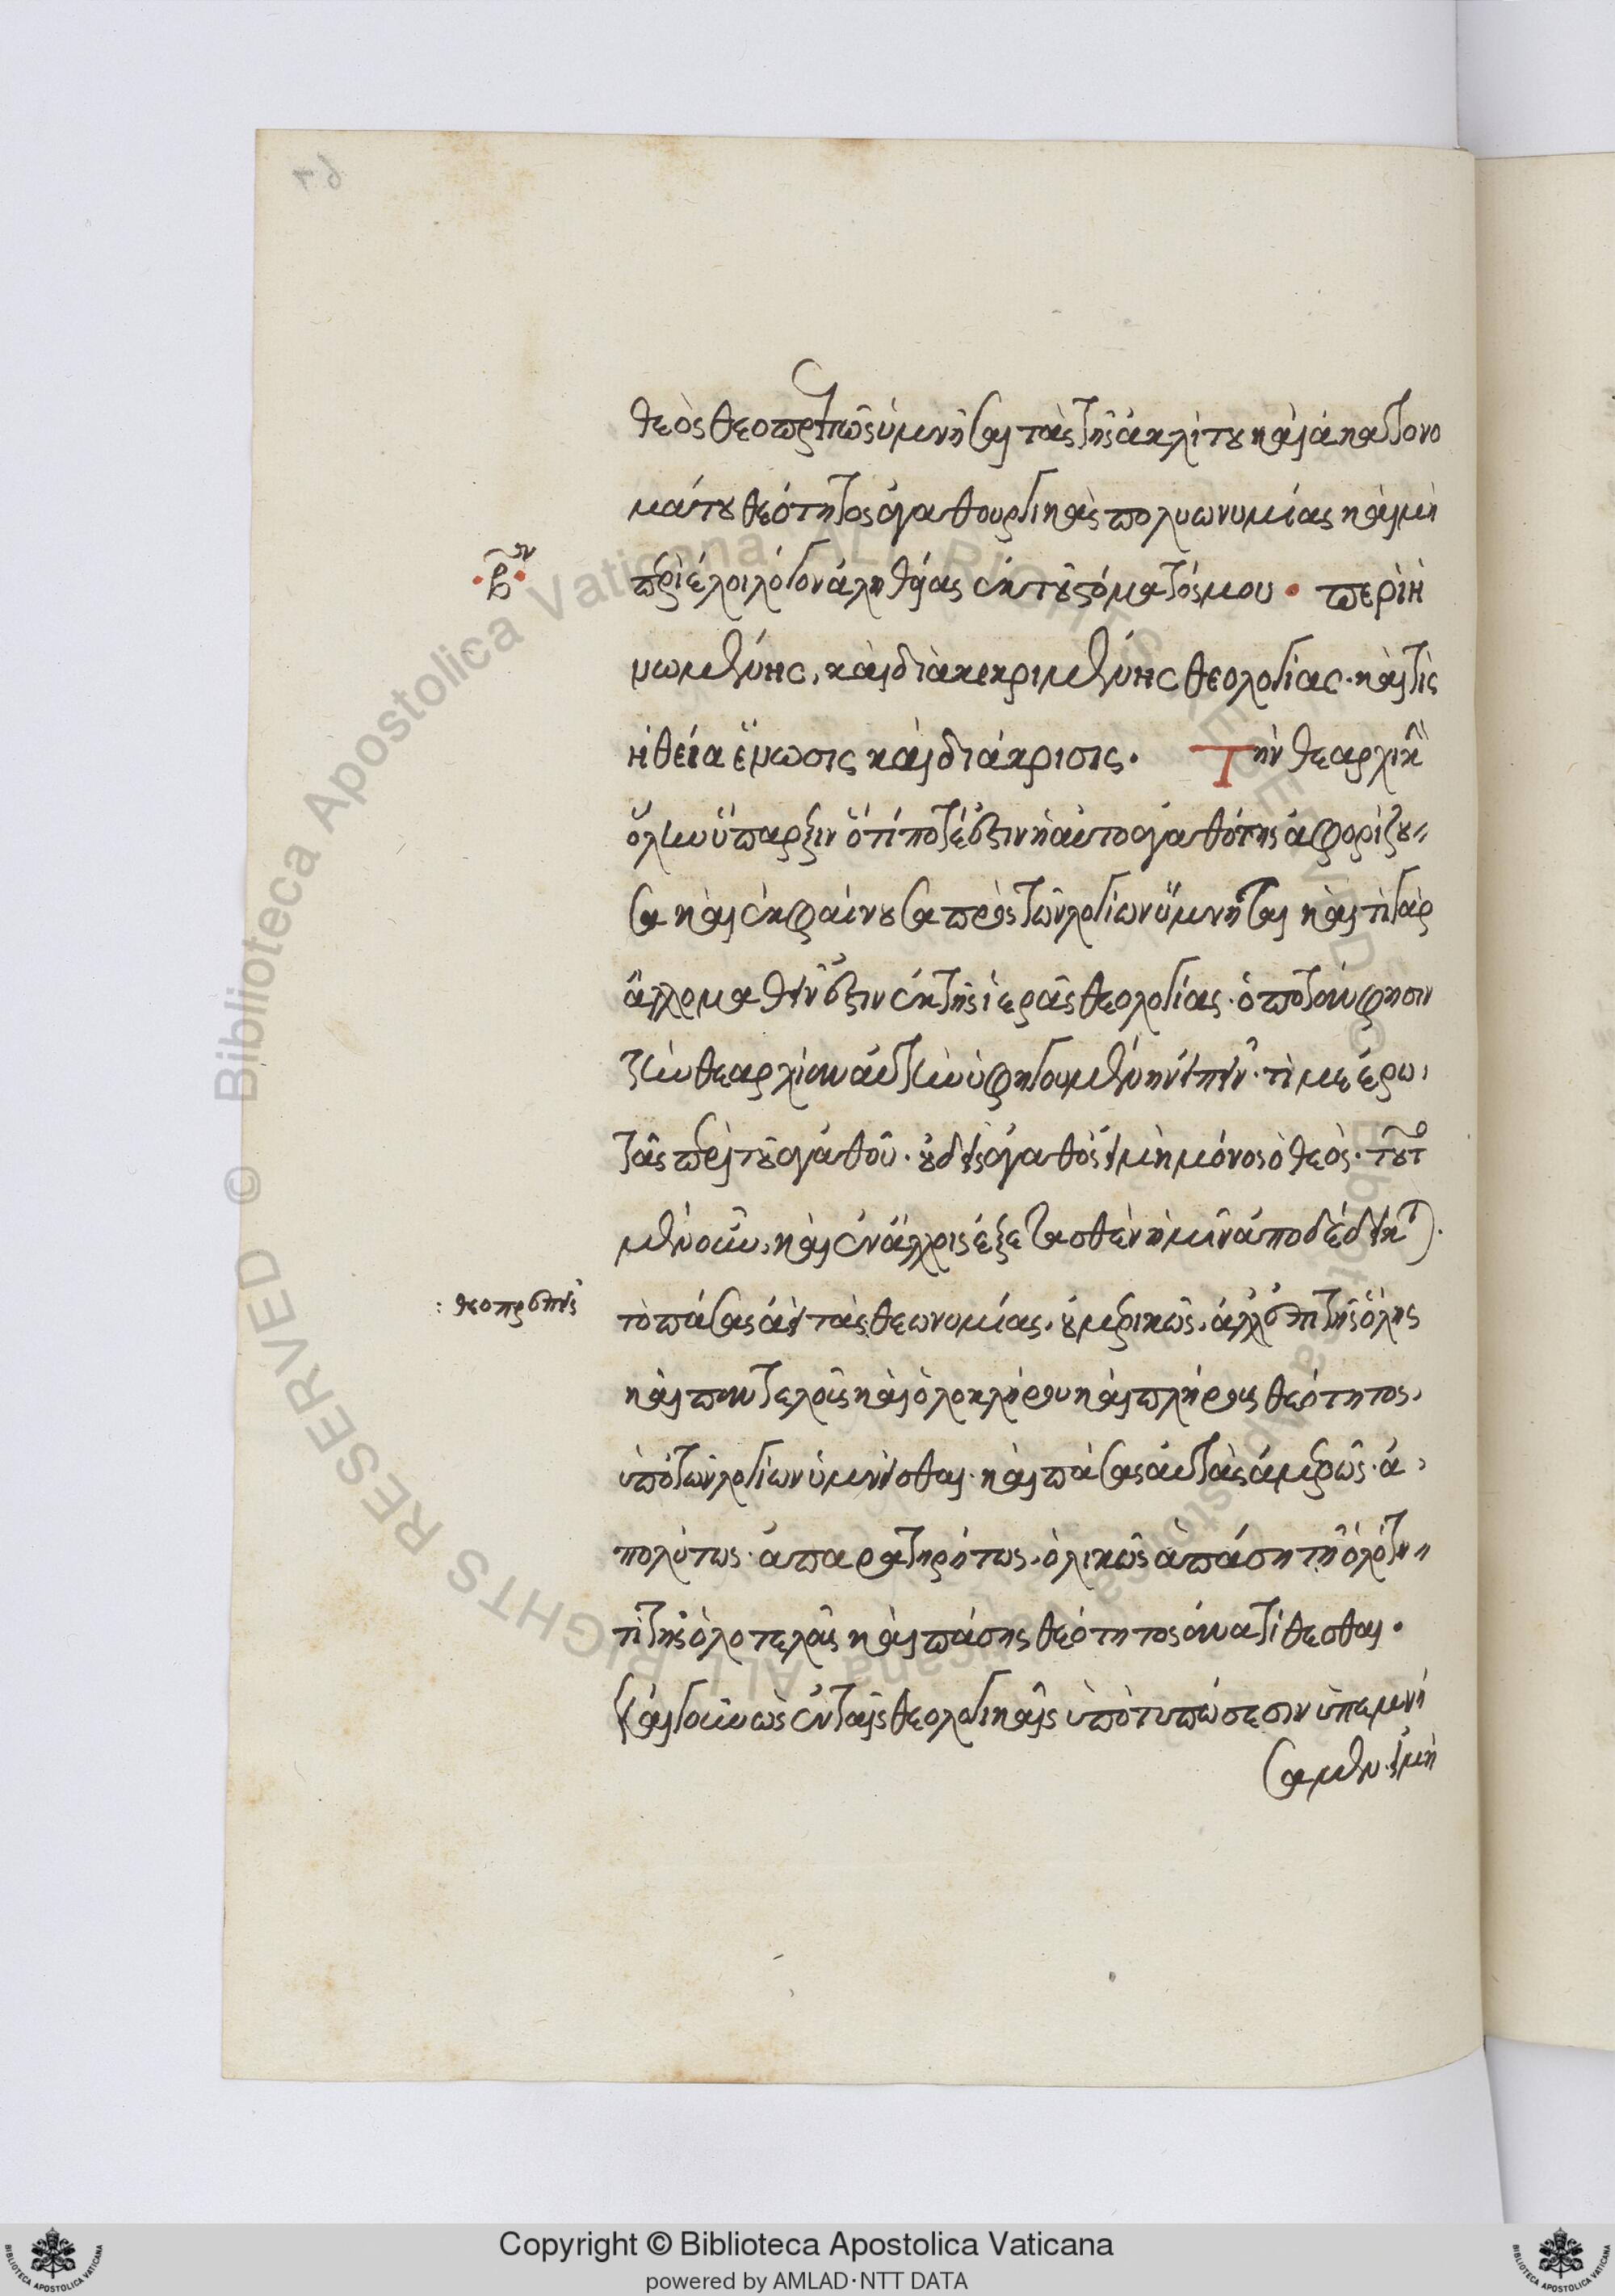 θεὸς θεοπρεπῶς ὑμνῆσαι τὰς τῆς ἀκλίτου καὶ ἀκατονο
μάστου θεότητος ἀγαθουργικὰς πολυωνυμίας καὶ μὴ
περιέλοι λόγον ἀληθείας ἐκ τοῦ στόματός μου · περὶ ἡ
νωμένης, καὶ διακεκριμένης θεολογίας · καὶ τίς
ἡ θεία ἕνωσις καὶ διάκρισις · Τὴν θεαρχικὴν
ὅλην ὕπαρξιν ὅτί ποτέ ἐστιν ἡ αὐτοαγαθότης ἀφορίζου
σα καὶ ἐκφαίνουσα πρὸς τῶν λογίων ὕμνηται καὶ τί γὰρ
ἄλλο μαθεῖν ἔστιν ἐκ τῆς ἱερᾶς θεολογίας · ὁπόταν φησὶν
τὴν θεαρχίαν αὐτὴν ὑφηγουμένην εἰπεῖν · τί με ἐρω
τᾶς περὶ τοῦ ἀγαθοῦ · οὐδεὶς ἀγαθὸς εἰ μὴ μόνος ὁ θεός · τοῦτο
μὲν οὖν, καὶ ἐν ἄλλοις ἐξετασθὲν ἡμῖν ἀποδέδεικται ·
τὸ πάσας ἀεὶ τὰς θεωνυμίας, οὐ μερικῶς, ἀλλ' ἐπὶ τῆς ὅλης
καὶ παντελοῦς καὶ ὁλοκλήρου καὶ πλήρους θεότητος,
ὑπὸ τῶν λογίων ὑμνεῖσθαι · καὶ πάσας αὐτὰς ἀμερῶς · ἀ
πολύτως · ἀπαρατηρήτως, ὁλικῶς ἁπάσῃ τῇ ὁλότη
τι τῆς ὁλοτελοῦς καὶ πάσης θεότητος ἀνατίθεσθαι ·
Καὶ γοῦν ὡς ἐν ταῖς θεολογικαῖς ὑποτυπώσεσιν ὑπεμνή
σαμεν · εἰ μὴ
·β·ον
: θεοπρεπεῖς